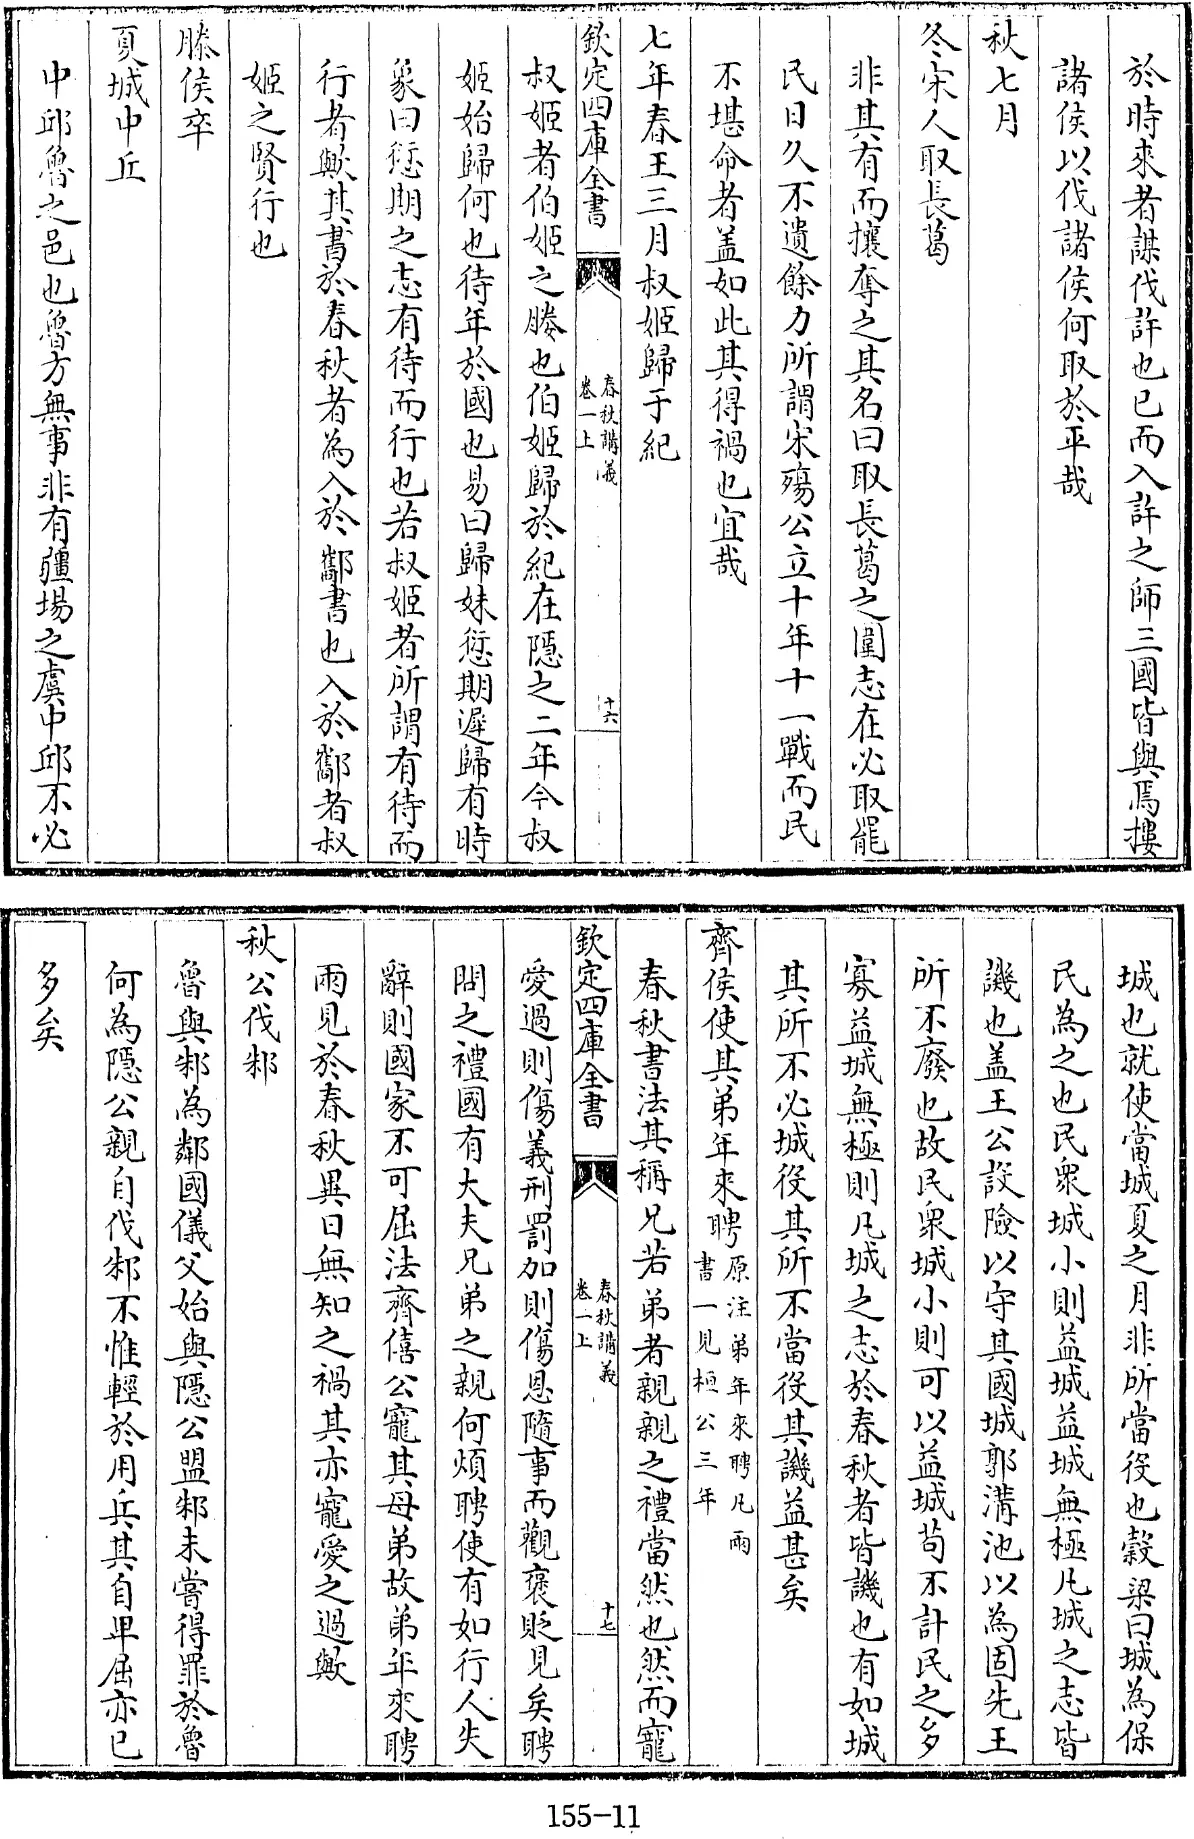 於時來者謀伐許也已而入許之師三國皆與焉摟
諸侯以伐諸侯何取於平哉
秋七月
冬宋人取長葛
非其有而攘奪之其名曰取長葛之圍志在必取罷
民日久不遺餘力所謂宋殤公立十年十一戰而民
不堪命者蓋如此其得禍也宜哉
七年春王三月叔姬歸于紀
欽定四庫全書
春秋講義
卷一上
十六
叔姬者伯姬之媵也伯姬歸於紀在隱之二年今叔
姬始歸何也待年於國也易曰歸妹愆期遲歸有時
象曰愆期之志有待而行也若叔姬者所謂有待而
行者歟其書於春秋者為入於酅書也入於酅者叔
姬之賢行也
滕侯卒
夏城中丘
中邱魯之邑也魯方無事非有疆埸之虞中邱不必
城也就使當城夏之月非所當役也穀梁曰城為保
民為之也民衆城小則益城益城無極凡城之志皆
譏也蓋王公設險以守其國城郭溝池以為固先王
所不廢也故民衆城小則可以益城苟不計民之多
寡益城無極則凡城之志於春秋者皆譏也有如城
其所不必城役其所不當役其譏益甚矣
齊侯使其弟年來聘原注弟年來聘凡兩
書一見桓公三年
春秋書法其稱兄若弟者親親之禮當然也然而寵
欽定四庫全書
春秋講義
卷一上
十七
愛過則傷義刑罰加則傷恩隨事而觀褒貶見矣聘
問之禮國有大夫兄弟之親何煩聘使有如行人失
辭則國家不可屈法齊僖公寵其母弟故弟年來聘
兩見於春秋異日無知之禍其亦寵愛之過歟
秋公伐邾
魯與邾為鄰國儀父始與隱公盟邾未嘗得罪於魯
何為隱公親自伐邾不惟輕於用兵其自卑屈亦已
多矣
155-11